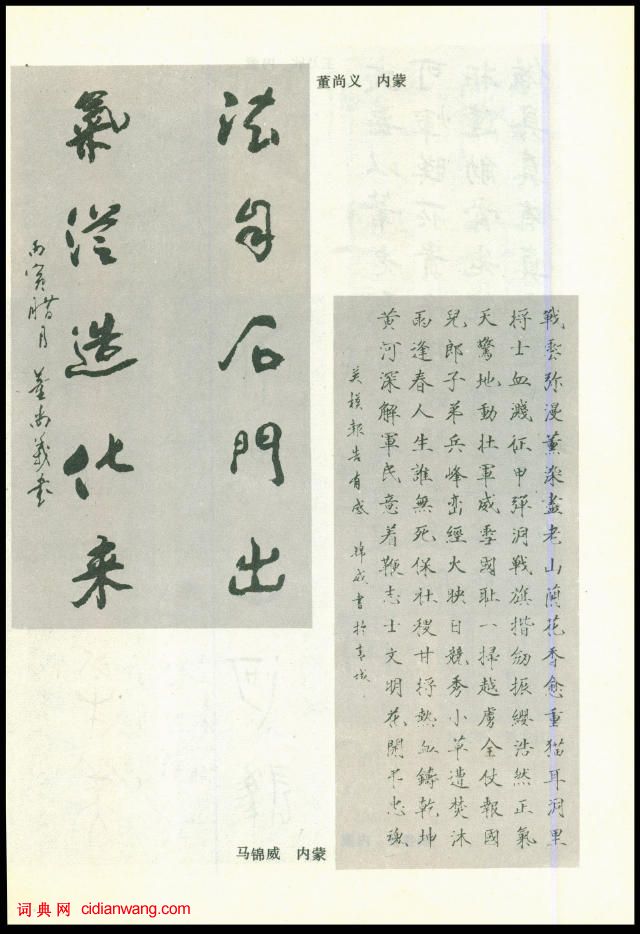 董尚义 内蒙
法自石門出
氣從造化来
丙寅腊月 董尚義書
戰雲弥漫薰染盡老山蘭花香愈重猫耳洞里
将士血濺征甲彈洞戰旗揩劍振纓浩然正氣
天驚地動壮軍威雪國耻一掃越虜全仗報國
兒郎子弟兵峰巒經火映日競秀小草遭焚沐
雨逢春人生誰無死保社稷甘抒熱血鑄乾坤
黄河深解軍民意着鞭志士文明花開吊忠魂
英模報告有感 錦威書於青城
马锦威 内蒙
词典网 cidianwang.com